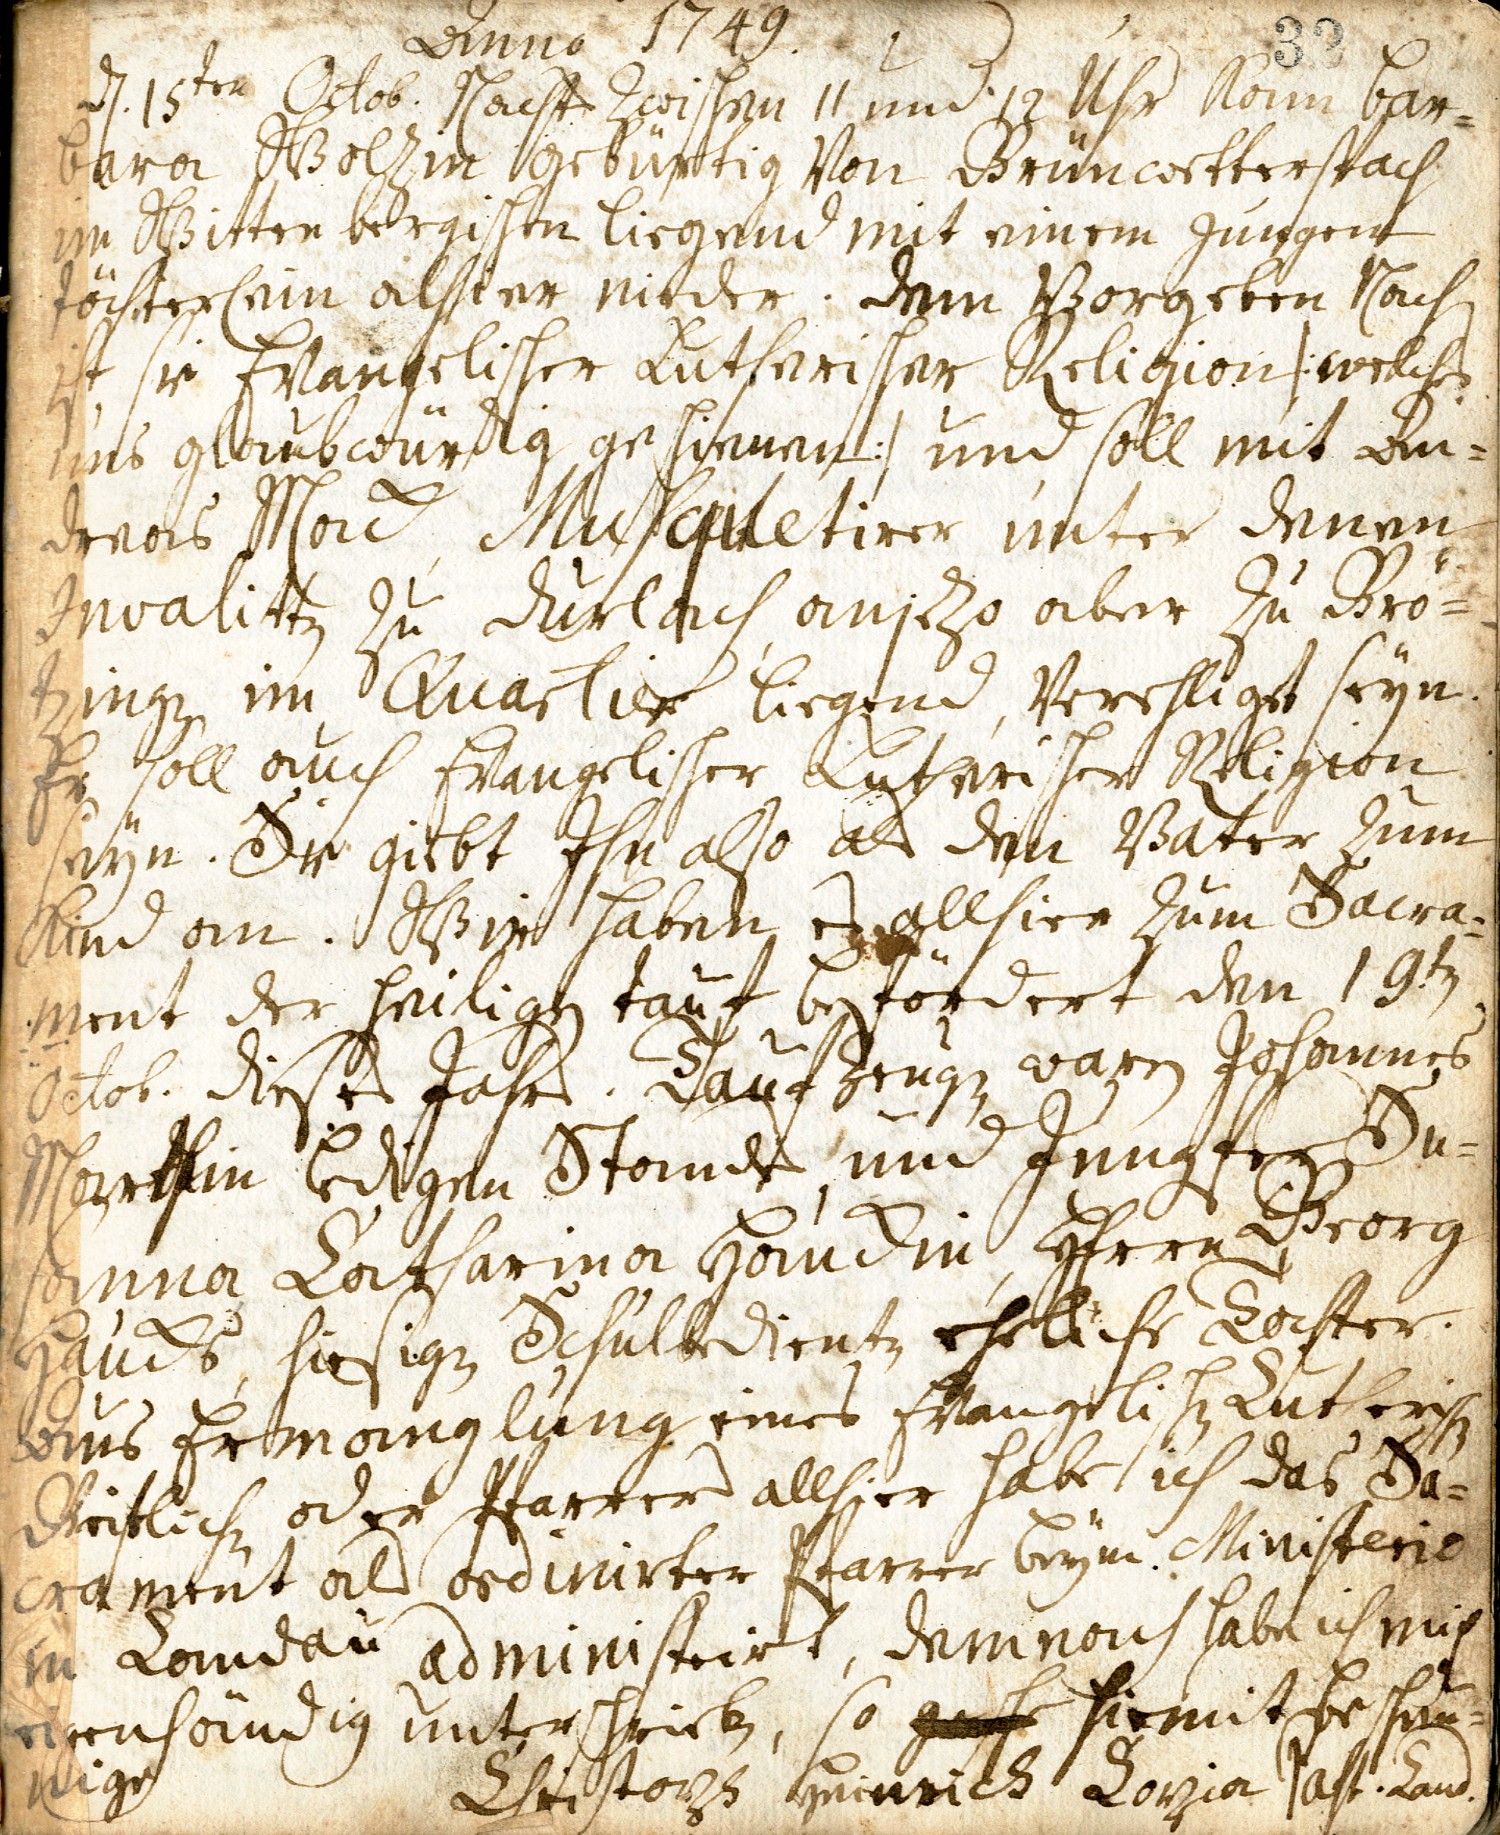 Anno 1749.
33
d. 15ten Octob. Nachts Zwischen 11 und 12 Uhr Kam bar=
bara Wolzin gebürtig Von Brünwettersbach
im Wittenbergischen liegend mit einem Jungen
töchterlein alhier nieder. dem Vorgeben Nach
ist sie Evangelischer Lutherischer Religion /: welches
uns glaubwürdig geschienen :/ und soll mit An=
dreas Mack, Musquetirer unter denen
Invaliten zu Durlach, anjezo aber zu Brö=
tzingen im Quartier liegend, Verehligt seyn.
Er soll auch Evangelischer Lutherischer Religion
seyn. Sie giebt Ihn also als den Vater zum
Kind an. Wir haben es allhier zum Sacra=
ment der heiligen tauf befördert den 19ten
Octob. dieses Jahrs. Taufzeugen waren Johannes
Marthin ledigen Stands, und Jungfer Su=
sanna Catharina Hauckin, Herrn Georg
Haucks, hiesigen Schulbedienten eheliche Tochter.
Aus Ermanglung eines Evangelischen Lutherischen
Geistlichen oder Pfarrers allhier habe ich das Sa=
crament als ordinirter Pfarrer beym Ministerio
in Landau administrirt, demnach habe ich mich
eigenhändig unterschrieben, so hiemit beschei=
nige
Christoph Heinrich Past. Land.